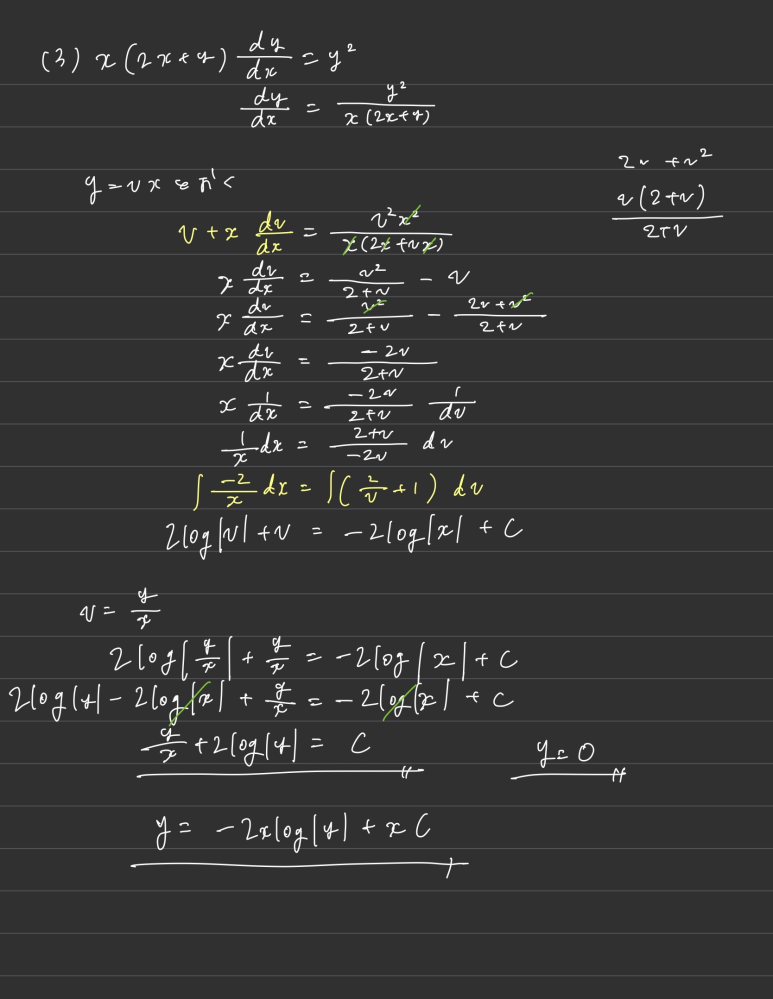 (3) x(2x+y) dy/dx = y²
dy/dx = y²/x(2x+y)
2v+v²
v(2+v)/2+v
y=vx とおく
v+x dv/dx = v²x²/x(2x+vx)
x dv/dx = v²/2+v - v
x dv/dx = v²/2+v - 2v+v²/2+v
x dv/dx = -2v/2+v
x 1/dx = -2v/2+v 1/dv
1/x dx = 2+v/-2v dv
∫ -2/x dx = ∫(2/v+1) dv
2log|v|+v = -2log|x|+C
v= y/x
2log|y/x|+y/x = -2log|x|+C
2log|y|-2log|x|+y/x = -2log|x|+C
y/x+2log|y| = C
y=0
y= -2xlog|y|+xC